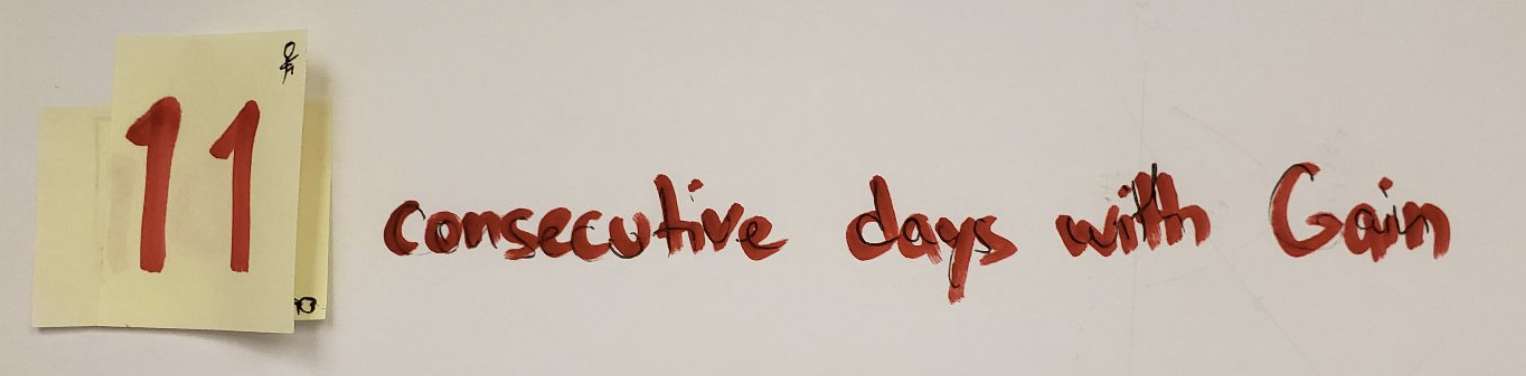 11 consecutive days with Gain